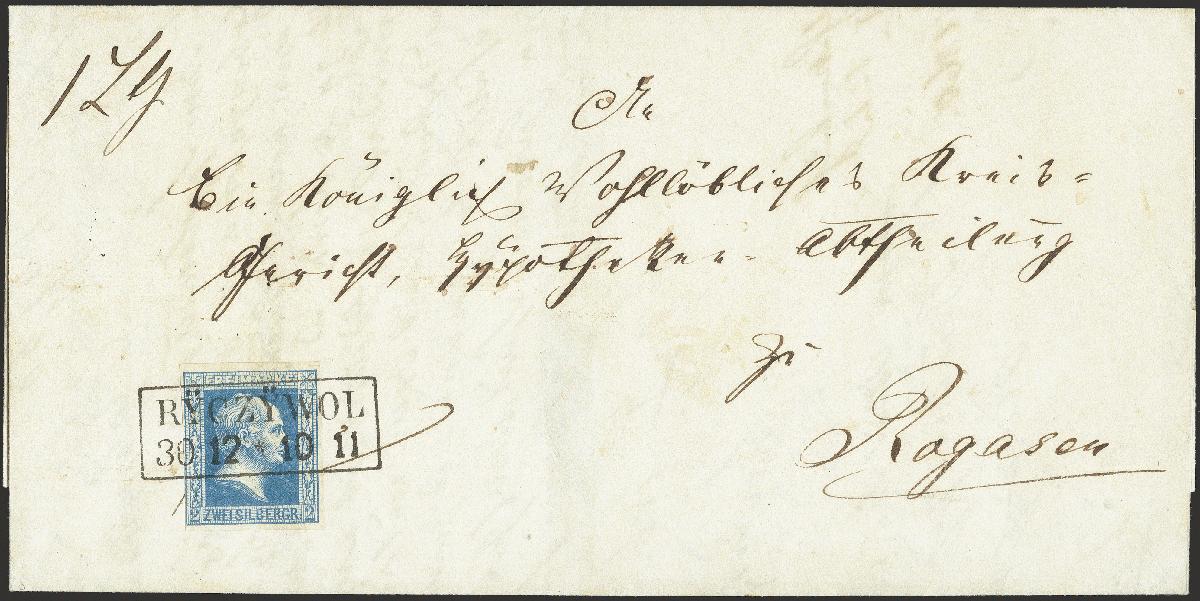 An
Ein Königlich Wohllöbliches Kreis=
Gericht, Hypotheken-Abtheilung
zu
Rogasen
FREIMARKE
RŸCZŸWOL
30 12 * 10 11
2 ZWEI SILBERGR. 2